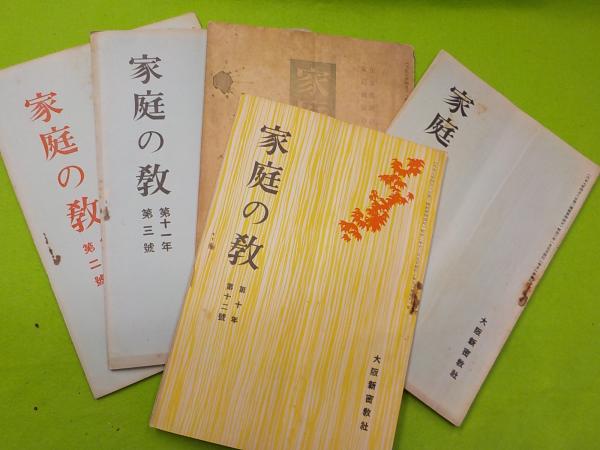 家庭の教
第二號
家庭の教
第十一年
第三號
家
家庭の教
第十年
第十二號
大阪新密教社
家庭
大阪新密教社